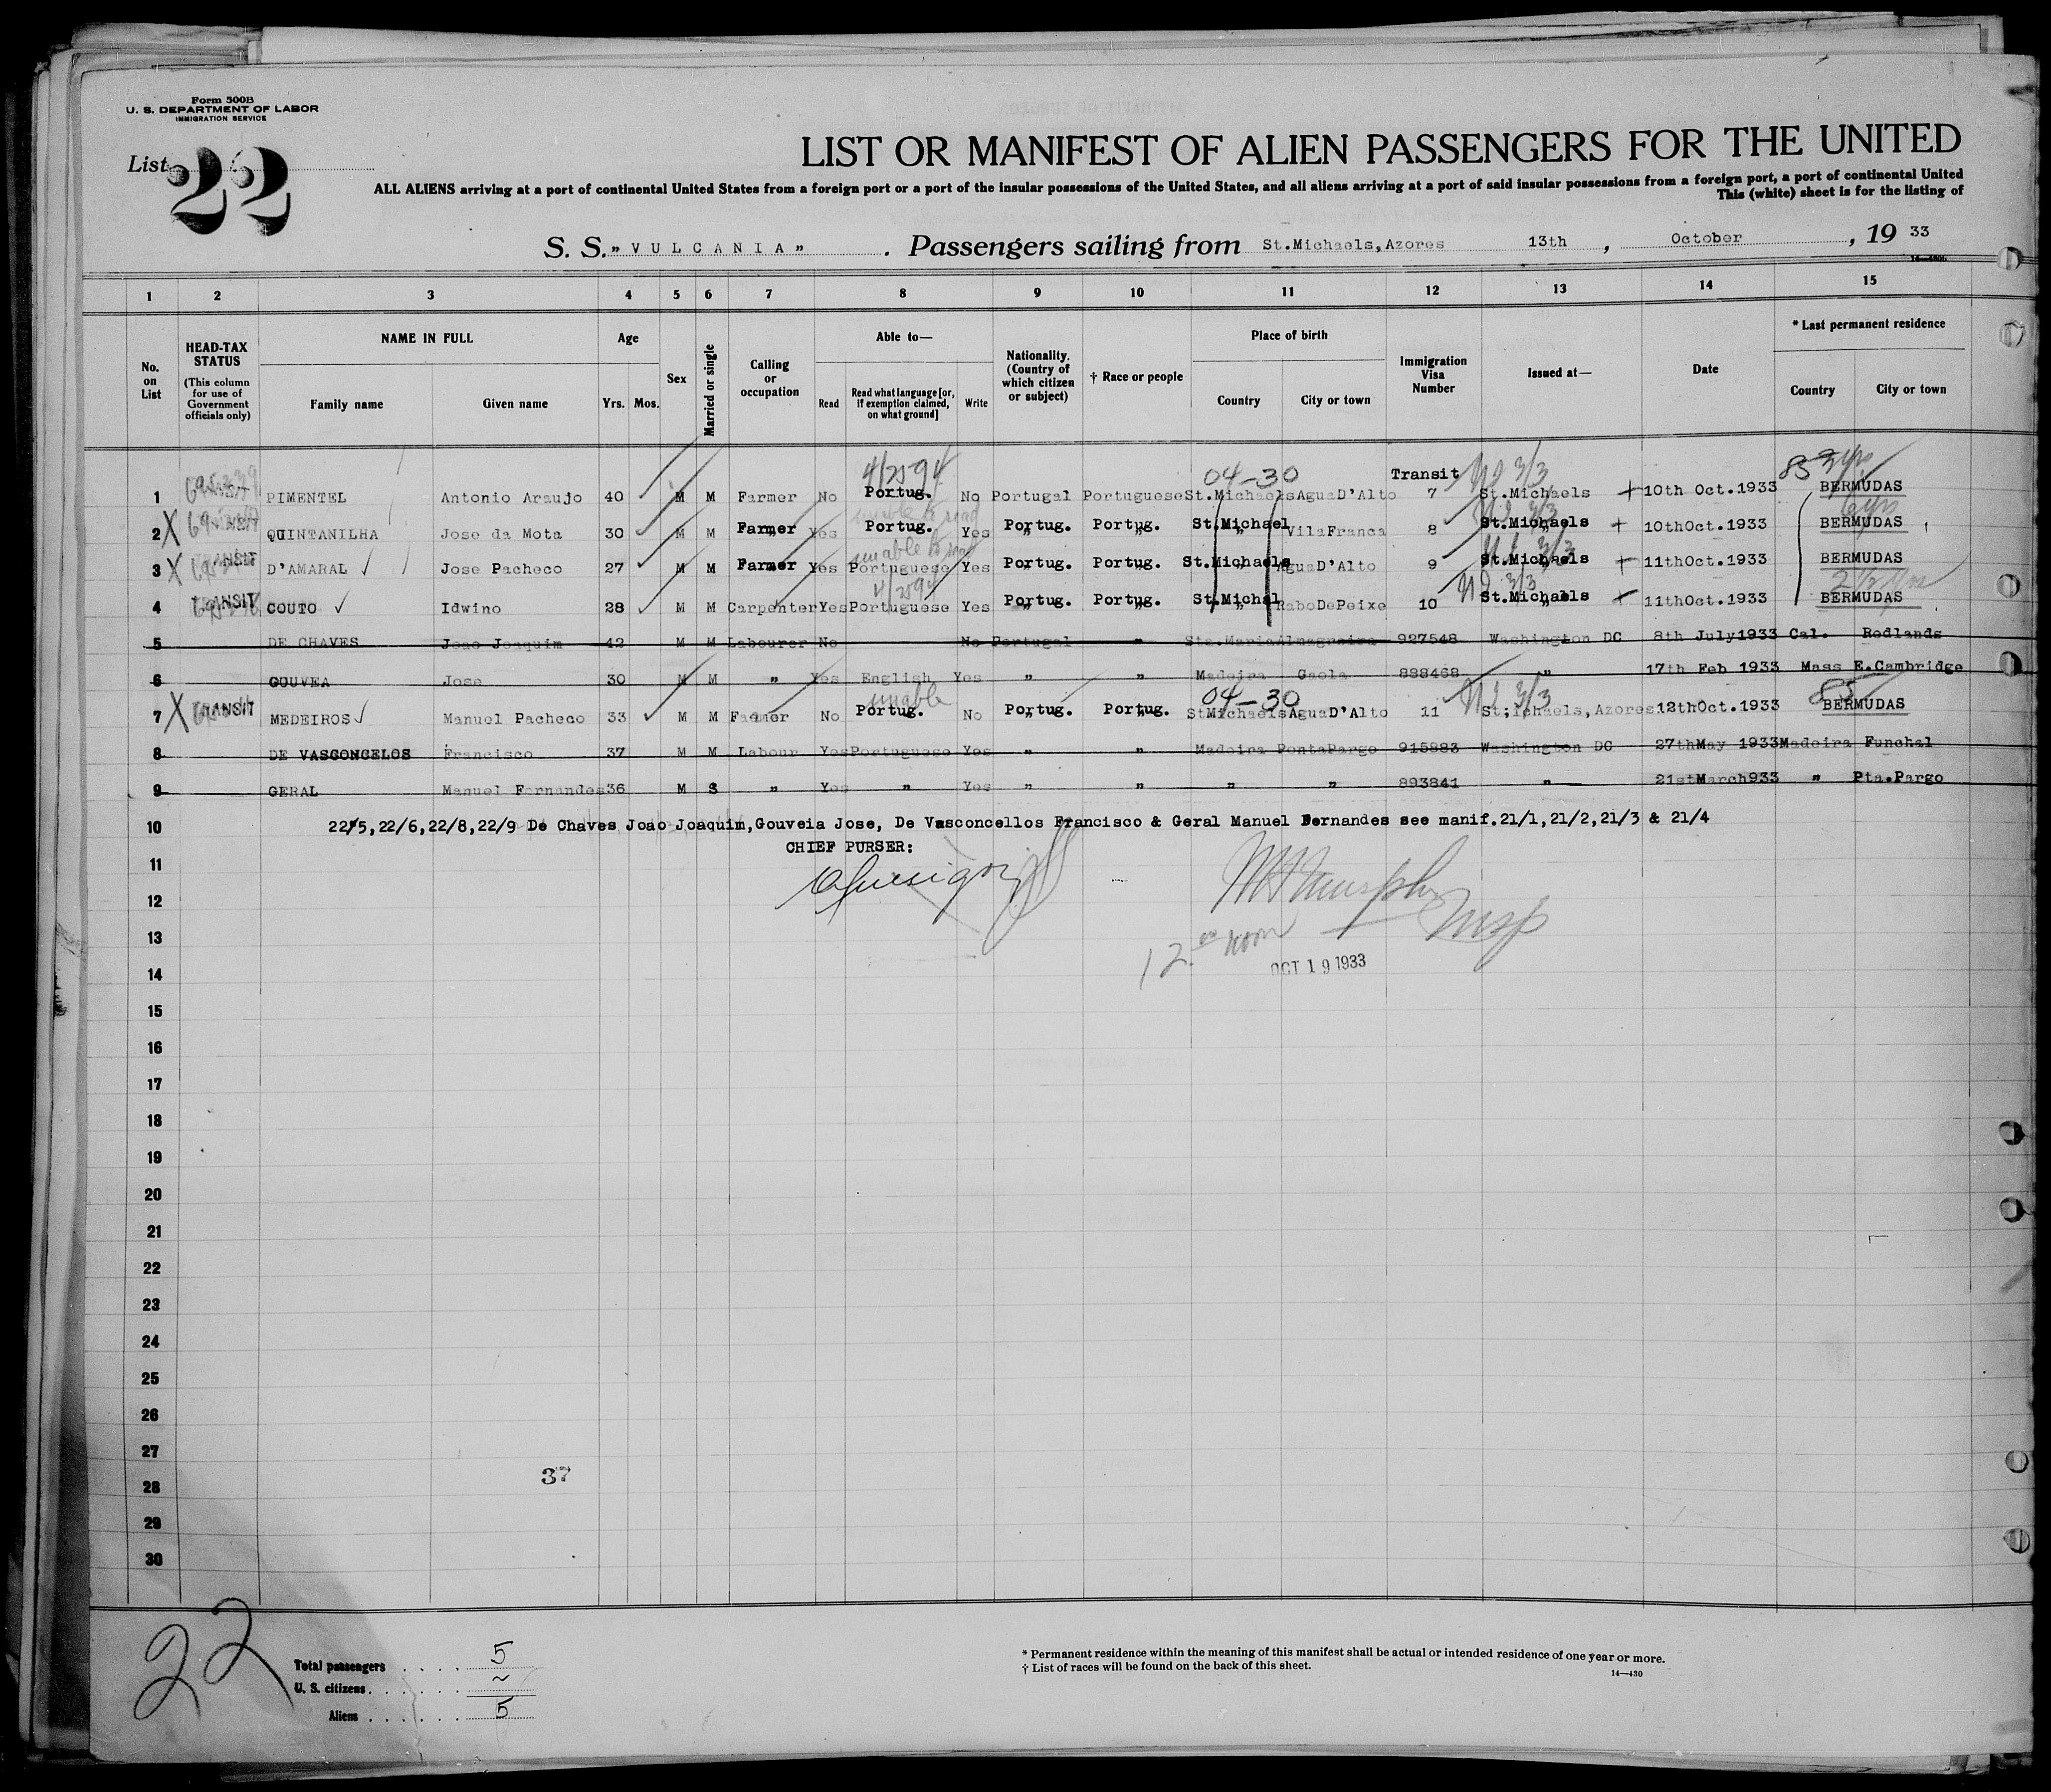 Form 500B
U. S. DEPARTMENT OF LABOR
IMMIGRATION SERVICE
List 22
LIST OR MANIFEST OF ALIEN PASSENGERS FOR THE UNITED
ALL ALIENS arriving at a port of continental United States from a foreign port or a port of the insular possessions of the United States, and all aliens arriving at a port of said insular possessions from a foreign port, a port of continental United
This (white) sheet is for the listing of
S. S. "VULCANIA". Passengers sailing from St.Michaels, Azores 13th, October, 19 33
1 2 3 4 5 6 7 8 9 10 11 12 13 14 15
No. on List
HEAD-TAX STATUS (This column for use of Government officials only)
NAME IN FULL Family name Given name
Age Yrs. Mos.
Sex
Married or single
Calling or occupation
Able to— Read Read what language [or, if exemption claimed, on what ground] Write
Nationality. (Country of which citizen or subject)
† Race or people
Place of birth Country City or town
Immigration Visa Number
Issued at—
Date
* Last permanent residence Country City or town
4/25 94 04-30 Transit 85 3 yrs
1 PIMENTEL Antonio Araujo 40 M M Farmer No Portug. No Portugal Portuguese St.Michaels AguaD'Alto 7 St.Michaels 10th Oct.1933 BERMUDAS
unable to read 6 yrs
2 X QUINTANILHA Jose da Mota 30 M M Farmer Yes Portug. Yes Portug. Portug. St.Michael VilaFranca 8 St.Michaels 10thOct.1933 BERMUDAS
unable to read
3 X TRANSIT D'AMARAL Jose Pacheco 27 M M Farmer Yes Portuguese Yes Portug. Portug. St.Michaels AguaD'Alto 9 St.Michaels 11thOct.1933 BERMUDAS
4/25 94 2 1/2 yrs
4 TRANSIT COUTO Idwino 28 M M Carpenter Yes Portuguese Yes Portug. Portug. St.Michal RaboDePeixe 10 St.Michaels 11thOct.1933 BERMUDAS
5 DE CHAVES Joao Joaquim 42 M M Labourer No No Portugal " Sta.Maria Almagreira 927548 Washington DC 8th July1933 Cal. Redlands
6 GOUVEA Jose 30 M M " Yes English Yes " " Madeira Gaola 888468 " 17th Feb 1933 Mass E.Cambridge
unable 04-30 85
7 X TRANSIT MEDEIROS Manuel Pacheco 33 M M Farmer No Portug. No Portug. Portug. StMichaels AguaD'Alto 11 St;ichaels,Azores 12thOct.1933 BERMUDAS
8 DE VASCONCELOS Francisco 37 M M Labour Yes Portuguese Yes " " Madeira PontaPargo 915883 Washington DC 27thMay 1933 Madeira Funchal
9 GERAL Manuel Fernandes 36 M S " Yes " Yes " " " " 893841 " 21stMarch933 " Pta.Pargo
10 22/5,22/6,22/8,22/9 De Chaves Joao Joaquim,Gouveia Jose, De Vasconcellos Francisco & Geral Manuel Fernandes see manif.21/1,21/2,21/3 & 21/4
CHIEF PURSER:
11
12
13 12.00 noon Insp
OCT 19 1933
14
15
16
17
18
19
20
21
22
23
24
25
26
27
37
28
29
30
22
Total passengers 5
U. S. citizens ~
Aliens 5
* Permanent residence within the meaning of this manifest shall be actual or intended residence of one year or more.
† List of races will be found on the back of this sheet.
14—430